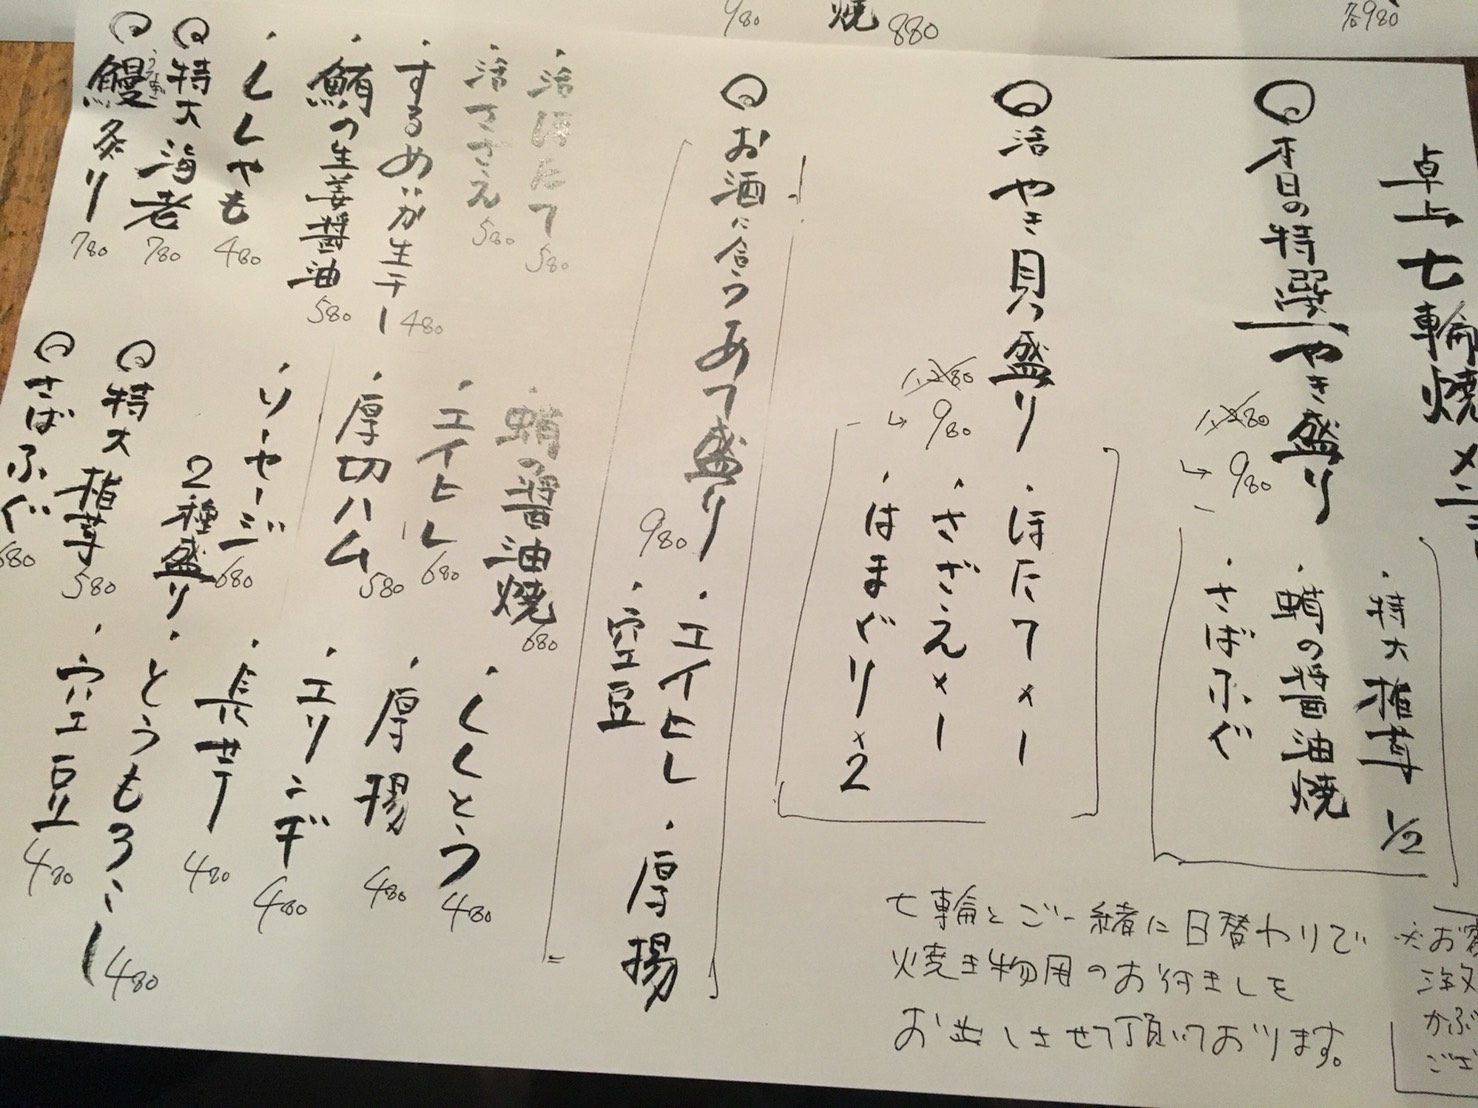 980
焼 880
980
卓上七輪焼メニュー
本日の特選やき盛り
1,280
→ 980
・特大椎茸 1/2
・蛸の醤油焼
・さばふぐ
活やき貝盛り
1,280
→ 980
・ほたて×1
・さざえ×1
・はまぐり×2
お酒に合うあて盛り
980
・エイヒレ
・空豆
・厚揚
・活ほたて 580
・活さざえ 580
・するめいか生干し 480
・鮪の生姜醤油 580
・ししゃも 480
特大海老 780
鰻炙り 780
・蛸の醤油焼 680
・エイヒレ 680
・厚切ハム 580
・ソーセージ
2種盛り 680
特大椎茸 580
さばふぐ 680
・ししとう 480
・厚揚 480
・エリンギ 480
・長芋 480
・とうもろこし 480
・空豆 480
七輪とご一緒に日替わりで
焼き物用のお付きしを
お出しさせて頂いております。
※お
注文
かぶ
ござ